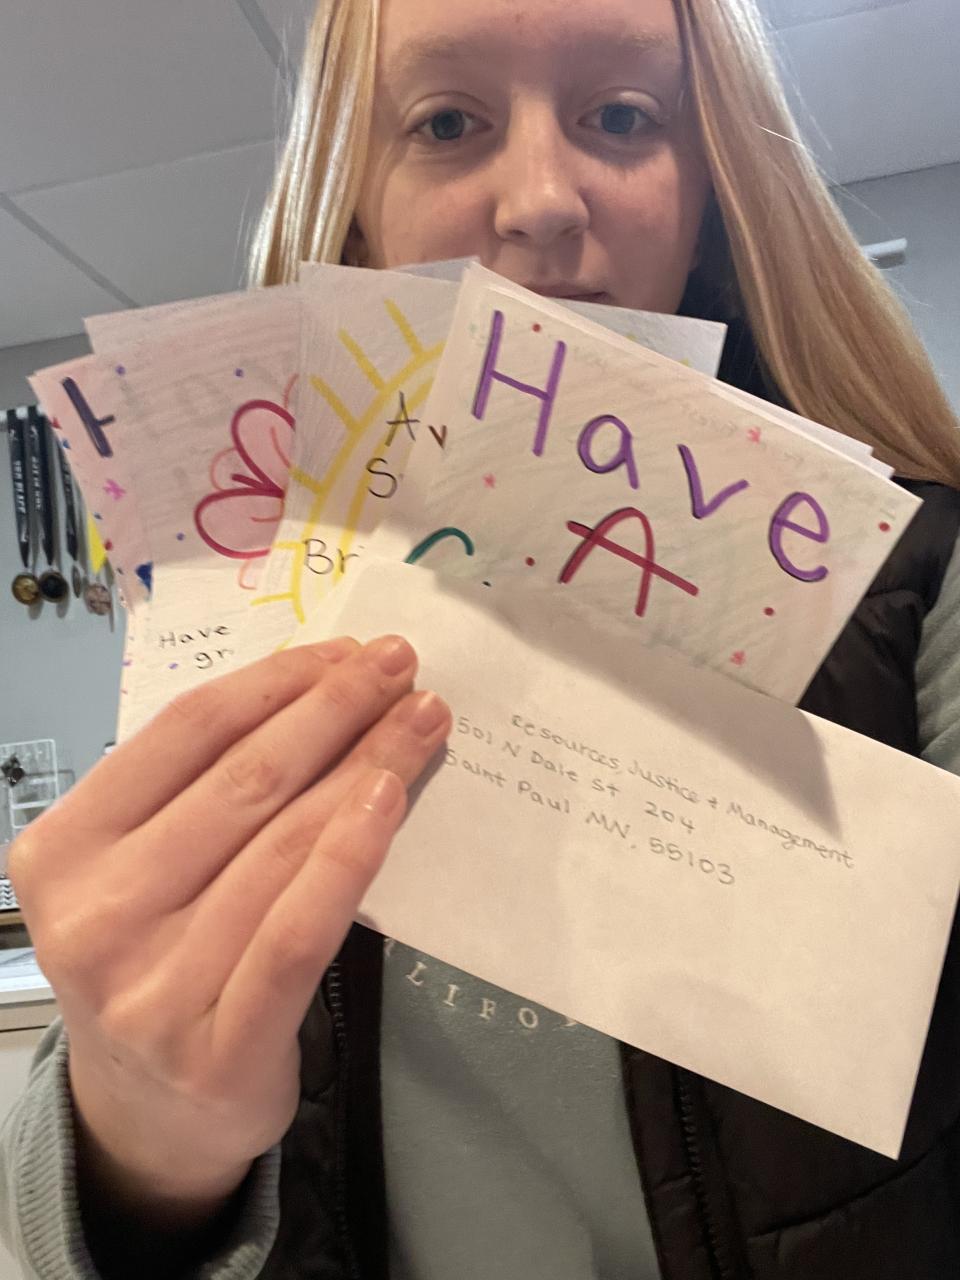 Have
A
Av
S
Br
Have
gr
Resources, Justice + Management
501 N Dale St 204
Saint Paul MN, 55103
LIFO